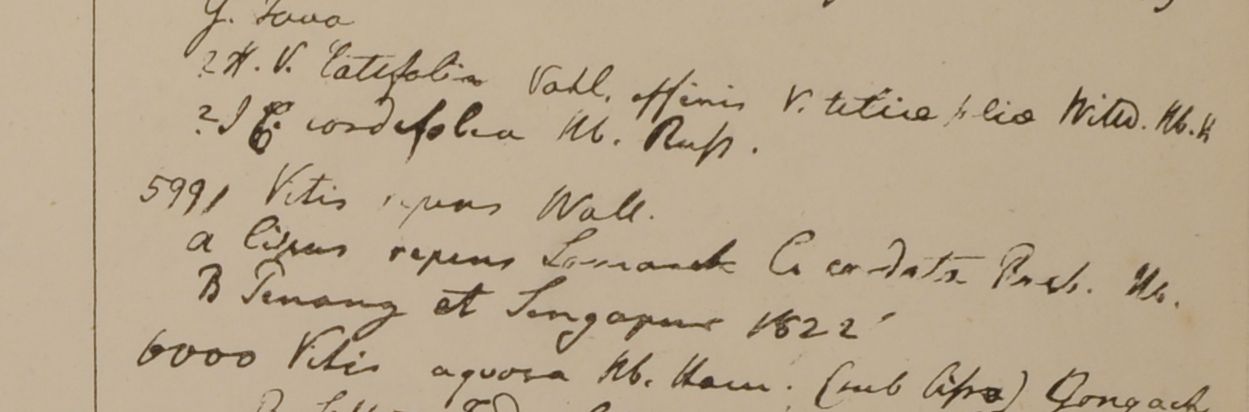 G. Java
? H. V. latifolia Vahl. affinis V. Willd. Hb.
? I C. cordifolia Hb. Russ.
5991 Vitis repens Wall.
a Cissus repens Lamarck C. cordata Roxb. Hb.
B Penang et Singapur 1822
6000 Vitis aquosa Hb. Ham. (sub Cisso) Gongach